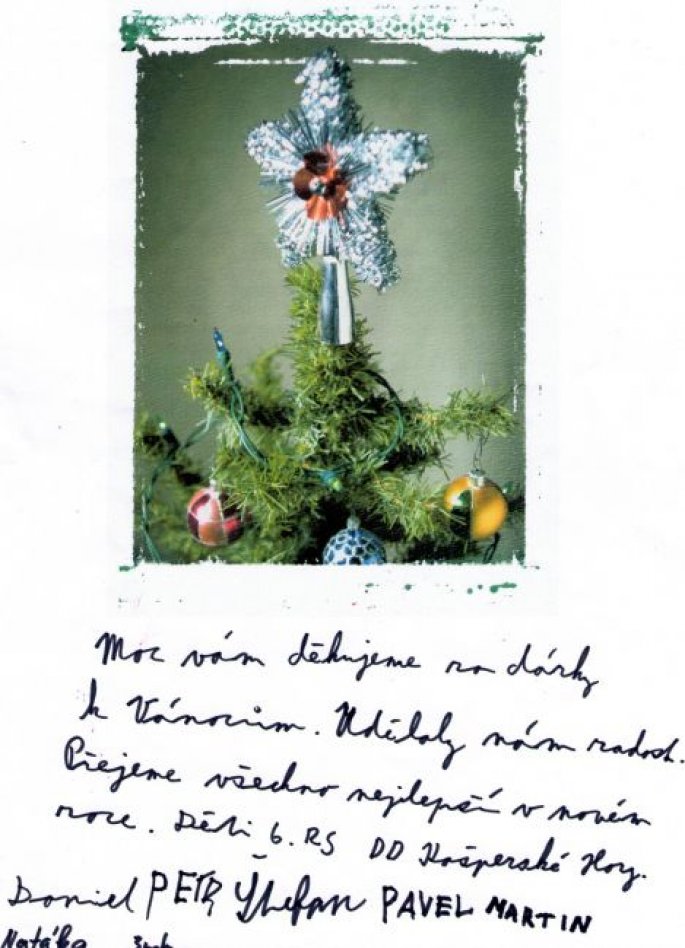 Moc vám děkujeme za dárky
k Vánocům. Udělaly nám radost.
Přejeme všechno nejlepší v novém
roce. Děti 6. RS DD Kašperské Hory.
Daniel PETR Štefan PAVEL MARTIN